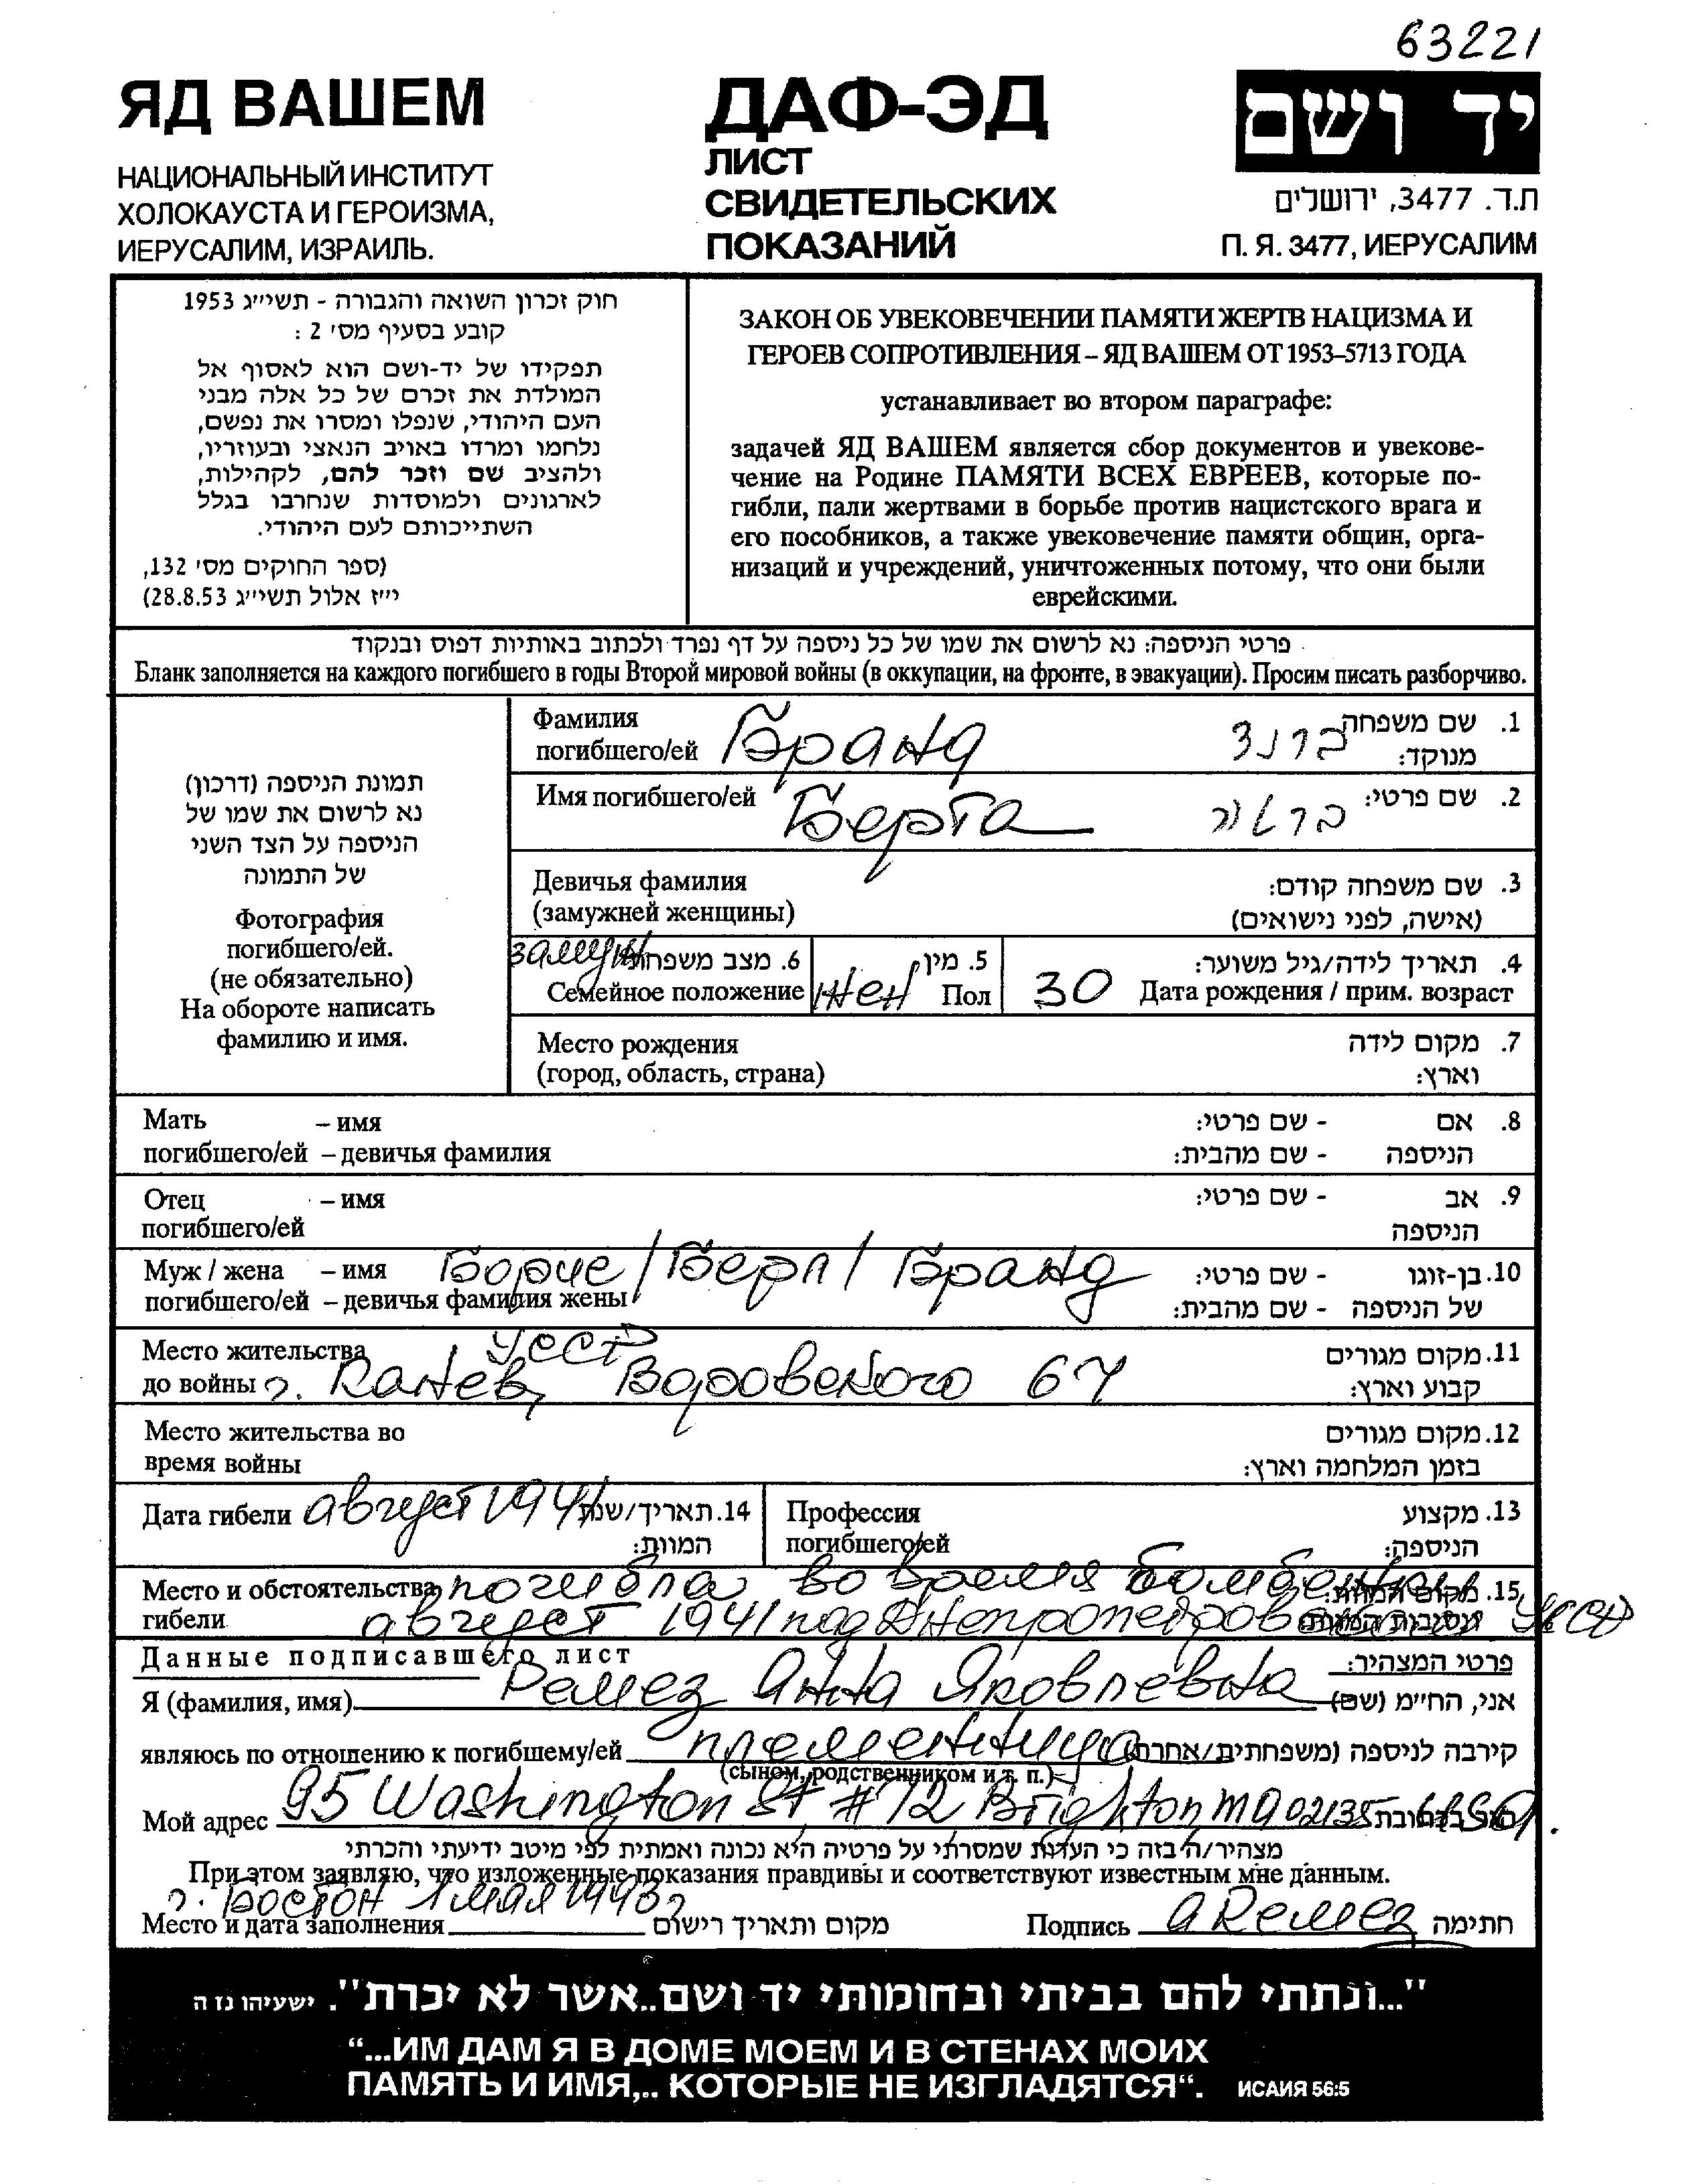 63221
ЯД ВАШЕМ
НАЦИОНАЛЬНЫЙ ИНСТИТУТ
ХОЛОКАУСТА И ГЕРОИЗМА,
ИЕРУСАЛИМ, ИЗРАИЛЬ.
ДАФ-ЭД
ЛИСТ
СВИДЕТЕЛЬСКИХ
ПОКАЗАНИЙ
יד ושם
ת.ד. 3477, ירושלים
П. Я. 3477, ИЕРУСАЛИМ
חוק זכרון השואה והגבורה - תשי״ג 1953
קובע בסעיף מס׳ 2 :
תפקידו של יד-ושם הוא לאסוף אל
המולדת את זכרם של כל אלה מבני
העם היהודי, שנפלו ומסרו את נפשם,
נלחמו ומרדו באויב הנאצי ובעוזריו,
ולהציב שם וזכר להם, לקהילות,
לארגונים ולמוסדות שנחרבו בגלל
השתייכותם לעם היהודי.
(ספר החוקים מס׳ 132,
י״ז אלול תשי״ג 28.8.53)
ЗАКОН ОБ УВЕКОВЕЧЕНИИ ПАМЯТИ ЖЕРТВ НАЦИЗМА И
ГЕРОЕВ СОПРОТИВЛЕНИЯ – ЯД ВАШЕМ ОТ 1953–5713 ГОДА
устанавливает во втором параграфе:
задачей ЯД ВАШЕМ является сбор документов и увекове-
чение на Родине ПАМЯТИ ВСЕХ ЕВРЕЕВ, которые по-
гибли, пали жертвами в борьбе против нацистского врага и
его пособников, а также увековечение памяти общин, орга-
низаций и учреждений, уничтоженных потому, что они были
еврейскими.
פרטי הניספה: נא לרשום את שמו של כל ניספה על דף נפרד ולכתוב באותיות דפוס ובנקוד
Бланк заполняется на каждого погибшего в годы Второй мировой войны (в оккупации, на фронте, в эвакуации). Просим писать разборчиво.
תמונת הניספה (דרכון)
נא לרשום את שמו של
הניספה על הצד השני
של התמונה
Фотография
погибшего/ей.
(не обязательно)
На обороте написать
фамилию и имя.
Фамилия погибшего/ей Бранд ברנד 1. שם משפחה מנוקד:
Имя погибшего/ей Берта ברטה 2. שם פרטי:
Девичья фамилия 3. שם משפחה קודם:
(замужней женщины) (אישה, לפני נישואים)
замуж 6. מצב משפחתי 5. מין 4. תאריך לידה/גיל משוער:
Семейное положение жен Пол 30 Дата рождения / прим. возраст
Место рождения 7. מקום לידה
(город, область, страна) וארץ:
Мать – имя 8. אם - שם פרטי:
погибшего/ей – девичья фамилия הניספה - שם מהבית:
Отец – имя 9. אב - שם פרטי:
погибшего/ей הניספה
Муж / жена – имя Борис /Берл/ Бранд 10. בן-זוגו - שם פרטי:
погибшего/ей – девичья фамилия жены של הניספה - שם מהבית:
Место жительства УССР 11. מקום מגורים
до войны г. Канев, Воровского 67 קבוע וארץ:
Место жительства во 12. מקום מגורים
время войны בזמן המלחמה וארץ:
Дата гибели август 1941 14. תאריך/שנת המוות:
Профессия 13. מקצוע
погибшего/ей הניספה:
Место и обстоятельства погибла во время бомбежки 15. מקום המוות:
гибели август 1941 под Днепропетровском УССР נסיבות המוות:
Данные подписавшего лист פרטי המצהיר:
Я (фамилия, имя) Ремез Анна Яковлевна אני, הח״מ (שם)
являюсь по отношению к погибшему/ей племянница קירבה לניספה (משפחתית/אחרת)
(сыном, родственником и т. п.)
Мой адрес 95 Washington St #72 Brighton MA 02135 USA.
מצהיר/ה בזה כי העדות שמסרתי על פרטיה היא נכונה ואמתית לפי מיטב ידיעתי והכרתי
При этом заявляю, что изложенные показания правдивы и соответствуют известным мне данным.
г. Бостон 1 мая 1993г
Место и дата заполнения מקום ותאריך רישום Подпись АРемез חתימה
"...ונתתי להם בביתי ובחומותי יד ושם..אשר לא יכרת". ישעיהו נו ה
“...ИМ ДАМ Я В ДОМЕ МОЕМ И В СТЕНАХ МОИХ
ПАМЯТЬ И ИМЯ,.. КОТОРЫЕ НЕ ИЗГЛАДЯТСЯ“. ИСАИЯ 56:5